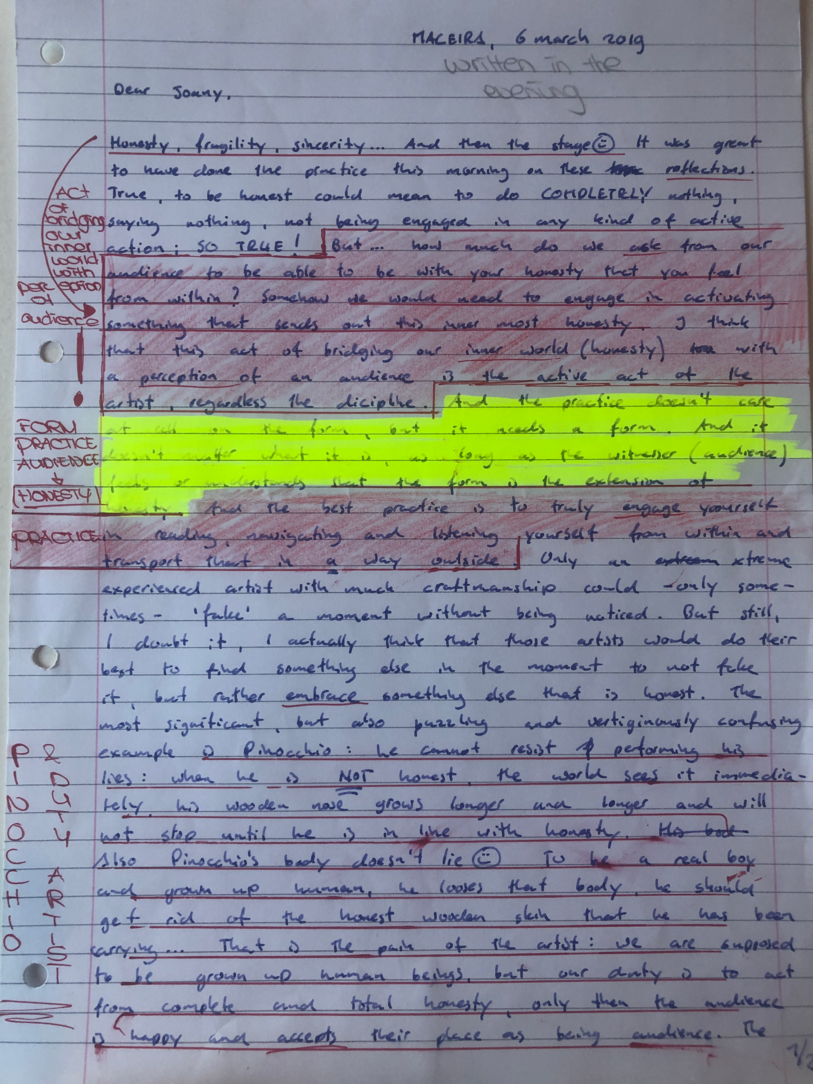 MACEIRA, 6 march 2019
written in the
evening
Dear Jonny,
Honesty, fragility, sincerity... And then the stage☺ It was great
to have done the practice this morning on these reflections.
True, to be honest could mean to do COMPLETELY nothing,
saying nothing, not being engaged in any kind of active
action; SO TRUE! But... how much do we ask from our
audience to be able to be with your honesty that you feel
from within? Somehow we would need to engage in activating
something that sends out this inner most honesty. I think
that this act of bridging our inner world (honesty) with
a perception of an audience is the active act of the
artist, regardless the dicipline. And the practice doesn't care
at all on the form, but it needs a form. And it
doesn't matter what it is, as long as the witnesser (audience)
feels or understands that the form is the extension of
honesty. And the best practice is to truly engage yourself
in reading, navigating and listening yourself from within and
transport that in a way outside. Only an xtreme
experienced artist with much craftmanship could -only some-
times- 'fake' a moment without being noticed. But still,
I doubt it, I actually think that those artists would do their
best to find something else in the moment to not fake
it, but rather embrace something else that is honest. The
most significant, but also puzzling and vertiginously confusing
example is Pinocchio: he cannot resist performing his
lies: when he is NOT honest, the world sees it immedia-
tely, his wooden nose grows longer and longer and will
not stop until he is in line with honesty.
Also Pinocchio's body doesn't lie☺ To be a real boy
and grown up human, he looses that body, he should
get rid of the honest wooden skin that he has been
carrying... That is the pain of the artist: we are supposed
to be grown up human beings, but our duty is to act
from complete and total honesty, only then the audience
is happy and accepts their place as being audience. The
1/2
ACT
of
bridging
our
inner
world
with
perception
of
audience
!
FORM
PRACTICE
AUDIENCE
↓
HONESTY
PRACTICE
PINOCCHIO
& DUTY ARTIST